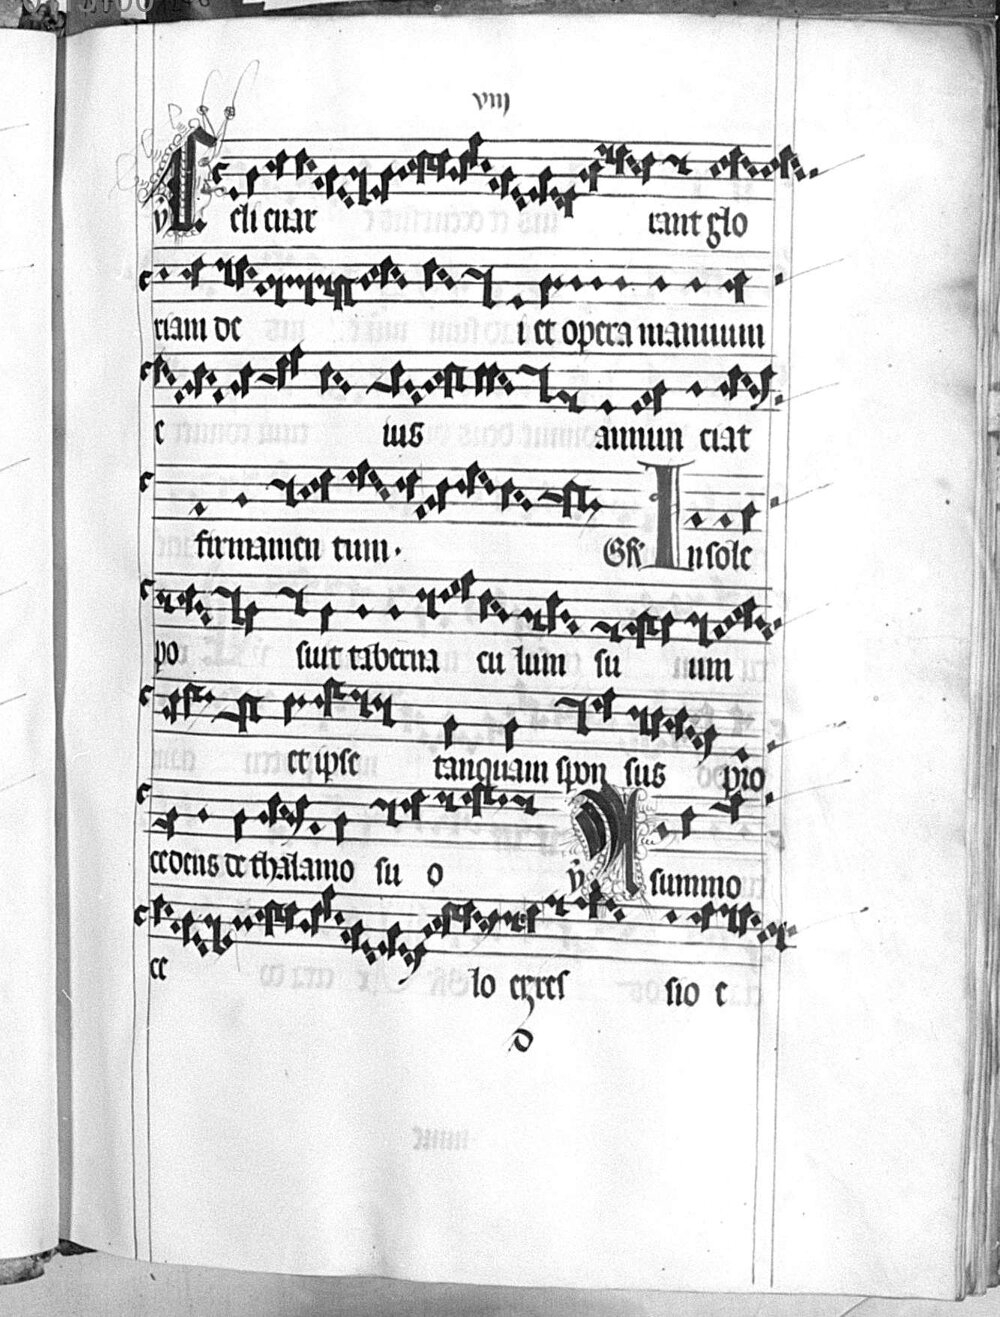 viij
℣ Celi enar rant glo
riam de i et opera manuum
e ius annun ciat
firmamen tum. Gr̄ In sole
po suit taberna cu lum su um
et ipse tanquam spon sus pro
cedens de thalamo su o ℣ A summo
ce lo egres sio e